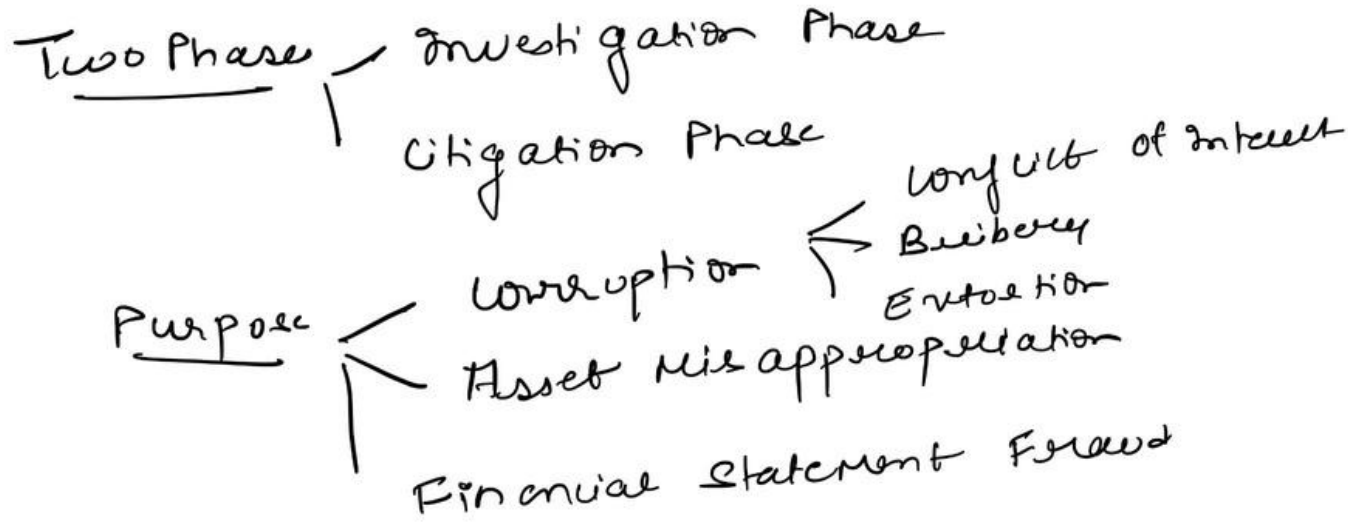 Two Phases
Investigation Phase
Litigation Phase
Purpose
Corruption
Conflict of Interest
Bribery
Extortion
Asset Misappropriation
Financial Statement Fraud